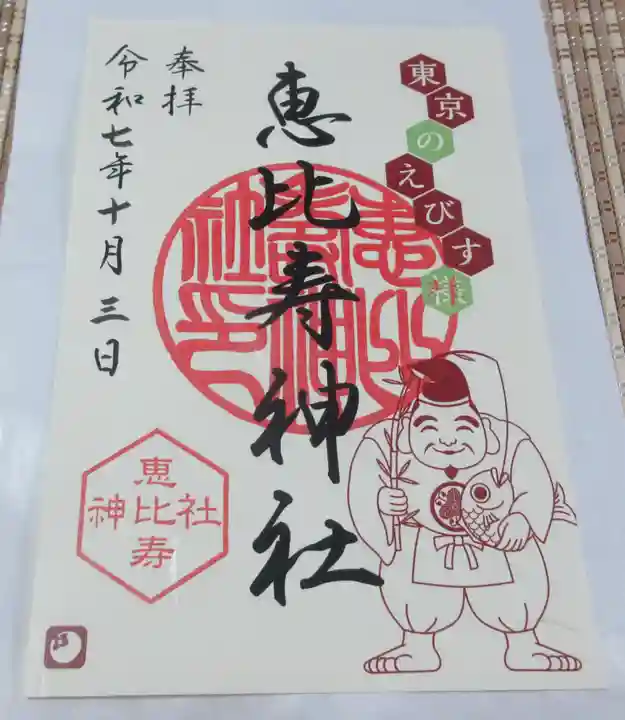 東京のえびす様
恵比寿神社
奉拝
令和七年十月三日
恵比寿神社印
恵
神比社
寿